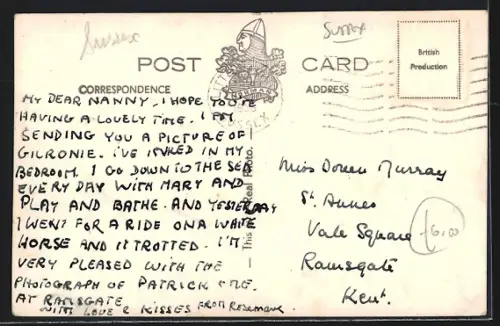 Sussex
Sussex
POST CARD
British
Production
CORRESPONDENCE
ADDRESS
MY DEAR NANNY. I HOPE YOU'RE
HAVING A LOVELY TIME. I AM
SENDING YOU A PICTURE OF
I'VE INKED IN MY
BEDROOM. I GO DOWN TO THE SEA
EVERY DAY WITH MARY AND
PLAY AND BATHE. AND YESTERDAY
I WENT FOR A RIDE ON A WHITE
HORSE AND IT TROTTED. I'M
VERY PLEASED WITH THE
PHOTOGRAPH OF PATRICK & ME.
AT RAMSGATE
WITH LOVE & KISSES FROM Rosemary
— This Real Photo.
SUSSEX
Miss Doreen Murray
St. Annes
Vale Square
Ramsgate
Kent.
6.00